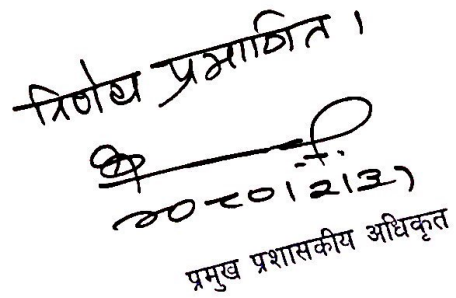 निर्णय प्रमाणित ।
२०८०।२।३१
प्रमुख प्रशासकीय अधिकृत